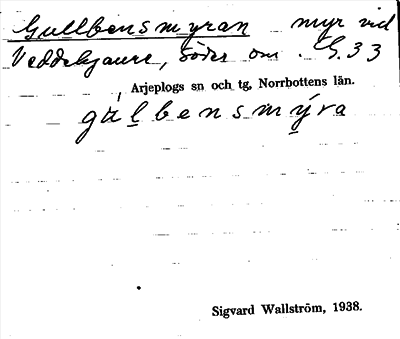 Gullbensmyran myr vid
Veddekjaure, söder om . G.33
Arjeplogs sn och tg, Norrbottens län.
gúl̲bensmý̲ra
Sigvard Wallström, 1938.